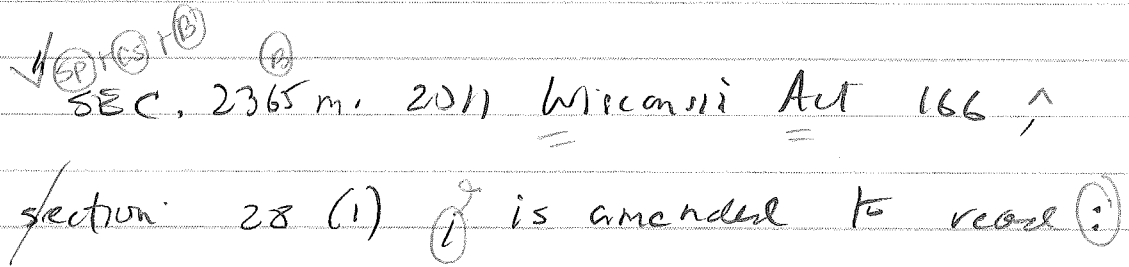 √ SP + CS + B
B
SEC. 2365m. 2011 Wisconsin Act 166 ^,
section 28 (1) i is amended to read :